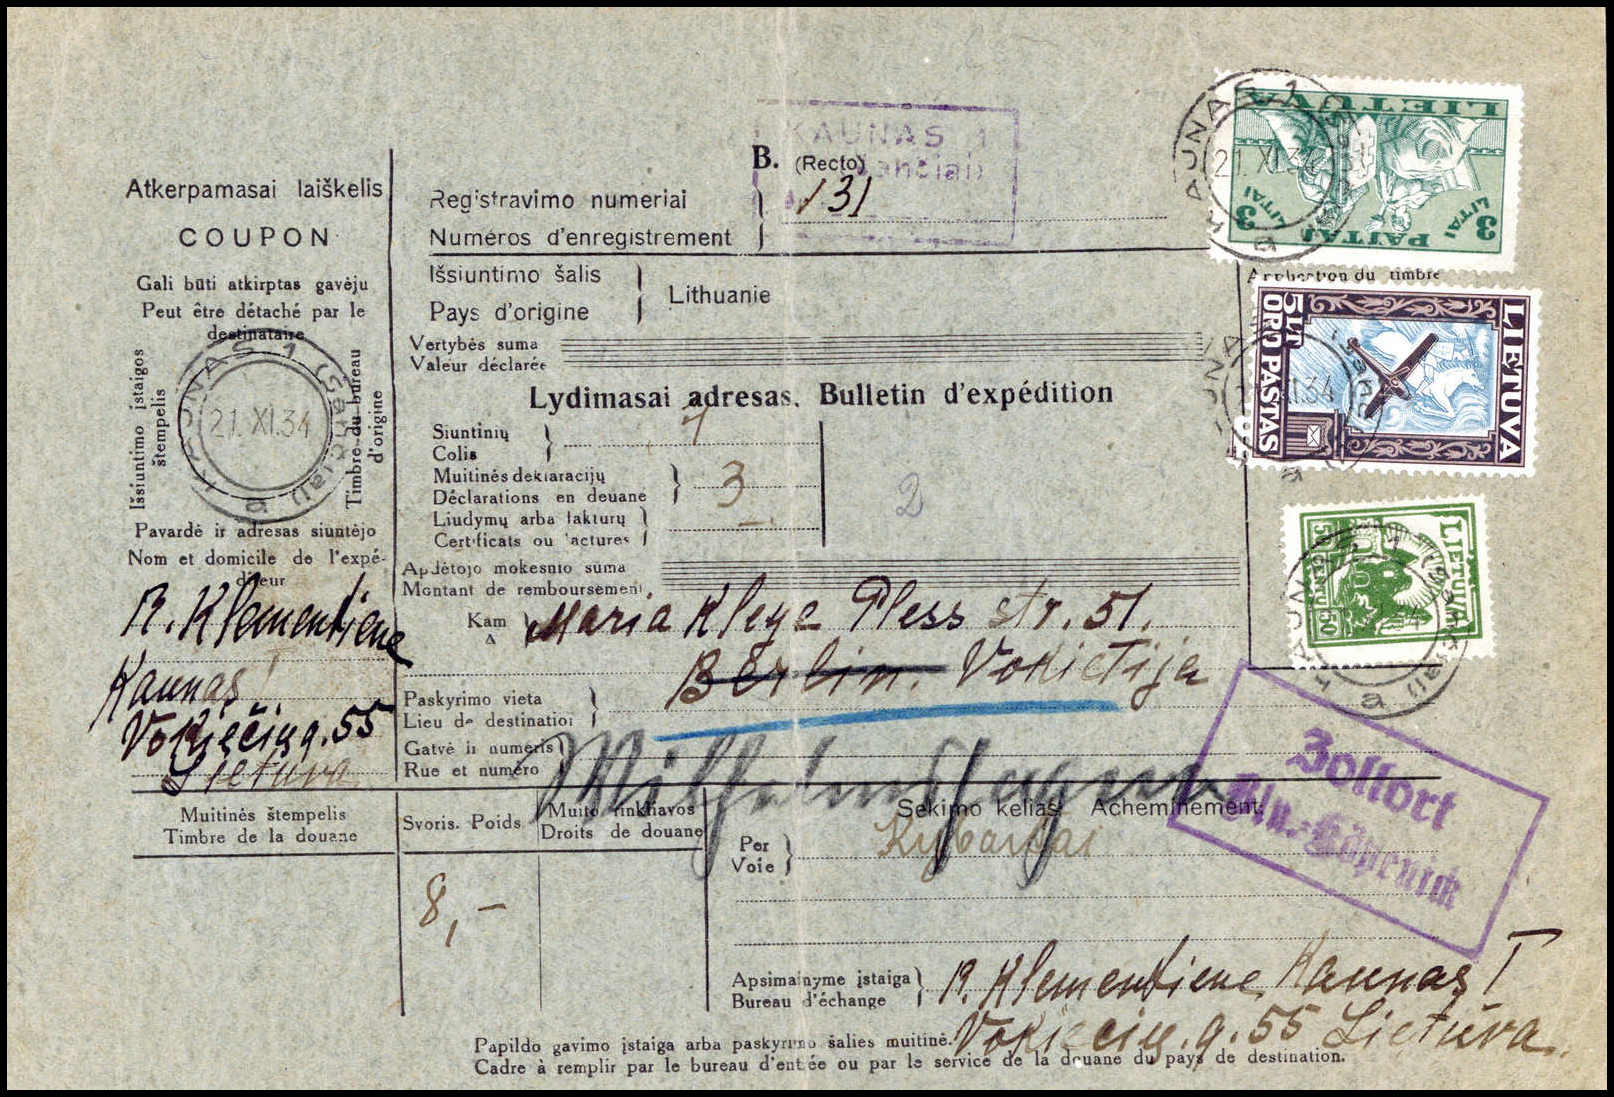 KAUNAS 1
B. (Recto)
Registravimo numeriai
Numéros d'enregistrement
131
Išsiuntimo šalis
Pays d'origine
Lithuanie
Vertybės suma
Valeur déclarée
Lydimasai adresas. Bulletin d'expédition
Siuntinių
Colis
1
Muitinės deklaracijų
Déclarations en douane
3
2
Liudymų arba fakturų
Certificats ou factures
–
Apdėtojo mokesnio suma
Montant de remboursement
Kam
A
Maria Kleye Pless str. 51.
Berlin. Vokietija
Paskyrimo vieta
Lieu de destination
Gatvė ir numeris
Rue et numéro
Wilhelmshagen
Atkerpamasai laiškelis
COUPON
Gali būti atkirptas gavėju
Peut être détaché par le
destinataire
Išsiuntimo įstaigos
štempelis
Timbre du bureau
d'origine
KAUNAS 1 (Šančiai)
21. XI.34
a
Pavardė ir adresas siuntėjo
Nom et domicile de l'expé-
diteur
R. Klementiene
Kaunas I
Vokiečių g. 55
Lietuva
Muitinės štempelis
Timbre de la douane
Svoris. Poids
8,–
Muito rinkliavos
Droits de douane
Sekimo kelias. Acheminement:
Per
Voie
Kybartai
Apsimainyme įstaiga
Bureau d'échange
R. Klementiene Kaunas I
Vokiečių g. 55 Lietuva.
Papildo gavimo įstaiga arba paskyrimo šalies muitinė.
Cadre à remplir par le bureau d'entrée ou par le service de la douane du pays de destination.
Application du timbre
LIETUVA
3 LITAI
PAJTAI
3 LITAI
KAUNAS 1
21. XI.34
a
LIETUVA
5 LT
ORO PAŠTAS
XI.34
LIETUVA
50
50
Zollort
Bln.-Köpenick